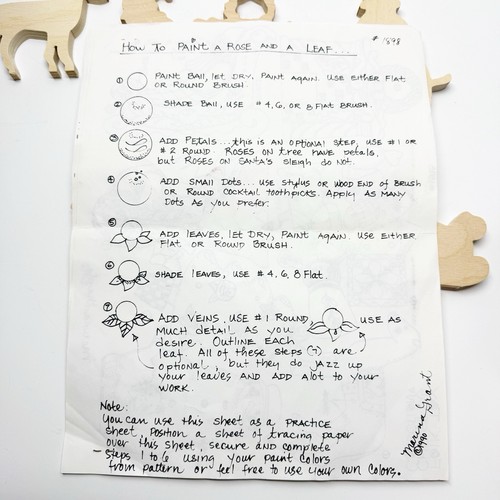 # 1598
How To Paint a Rose and a Leaf....
① Paint Ball, let dry, paint again. Use either flat
or round brush.
② Shade Ball, use #4, 6, or 8 flat brush.
③ Add petals... this is an optional step, use #1 or
#2 round. Roses on tree have petals,
but roses on Santa's sleigh do not.
④ Add small dots... use stylus or wood end of brush
or round cocktail toothpicks. Apply as many
dots as you prefer.
⑤ Add leaves, let dry, paint again. Use either
flat or round brush.
⑥ Shade leaves, use #4, 6, 8 flat.
⑦ Add veins, use #1 round,
use as
much detail as you
desire. Outline each
leaf. All of these steps (7) are
optional, but they do jazz up
your leaves and add alot to your
work.
Note:
You can use this sheet as a practice
sheet, position a sheet of tracing paper
over this sheet, secure and complete
- steps 1 to 6 using your paint colors
from pattern or feel free to use your own colors.
Marina Grant
©1990